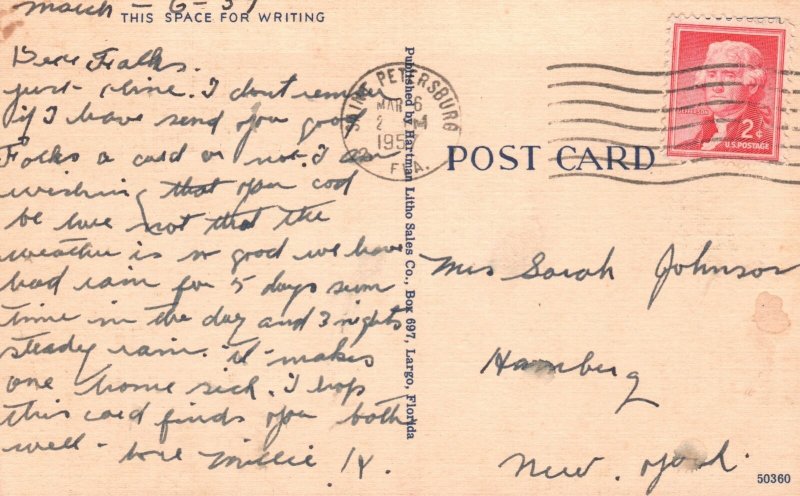 March - 6 - 57
THIS SPACE FOR WRITING
Dear Folks.
just a line. I dont remember
if I have send you good
Folks a card or not. I am
wishing that you cod
be here not that the
weather is so good we have
had rain for 5 days sum
time in the day and 3 nights
steady rain. it makes
one home sick. I hop
this card finds you both
well - love Millie
Published by Hartman Litho Sales Co., Box 697, Largo, Florida
SAINT PETERSBURG
MAR 6
2 PM
195
FLA.
POST CARD
JEFFERSON
2¢
U.S. POSTAGE
Mrs Sarah Johnson
Hamburg
New. York.
50360